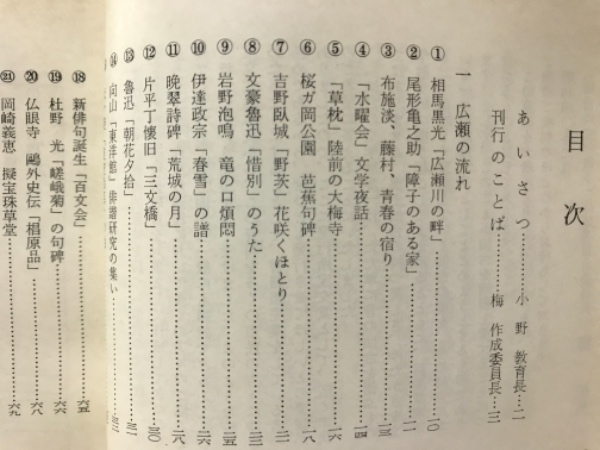 目次
あいさつ……小野 教育長…二
刊行のことば……梅 作成委員長…三
一 広瀬の流れ
① 相馬黒光「広瀬川の畔」……一〇
② 尾形亀之助「障子のある家」……一一
③ 布施淡、藤村、青春の宿り……一三
④ 「水曜会」文学夜話……一四
⑤ 「草枕」陸前の大梅寺……一六
⑥ 桜ガ岡公園 芭蕉句碑……一八
⑦ 吉野臥城「野茨」花咲くほとり……二一
⑧ 文豪魯迅「惜別」のうた……二三
⑨ 岩野泡鳴 竜の口煩悶……二五
⑩ 伊達政宗「春雪」の譜……二六
⑪ 晩翠詩碑「荒城の月」……二八
⑫ 片平丁懐旧「三文橋」……三〇
⑬ 魯迅「朝花夕拾」……三一
⑭ 向山「東洋館」俳諧研究の集い……三二
⑱ 新俳句誕生「百文会」……六五
⑲ 杜野 光「嵯峨菊」の句碑……六六
⑳ 仏眼寺 鷗外史伝「椙原品」……六八
㉑ 岡崎義恵 擬宝珠草堂……六九